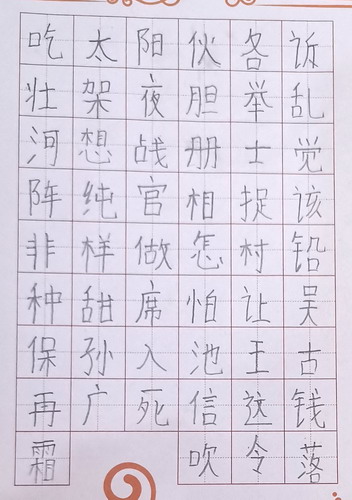 吃太阳伙各诉
壮架夜胆举乱
河想战册士觉
阵纯官相捉该
非样做怎村铅
种甜席怕让吴
保孙入池王古
再广死信这钱
霜吹令落